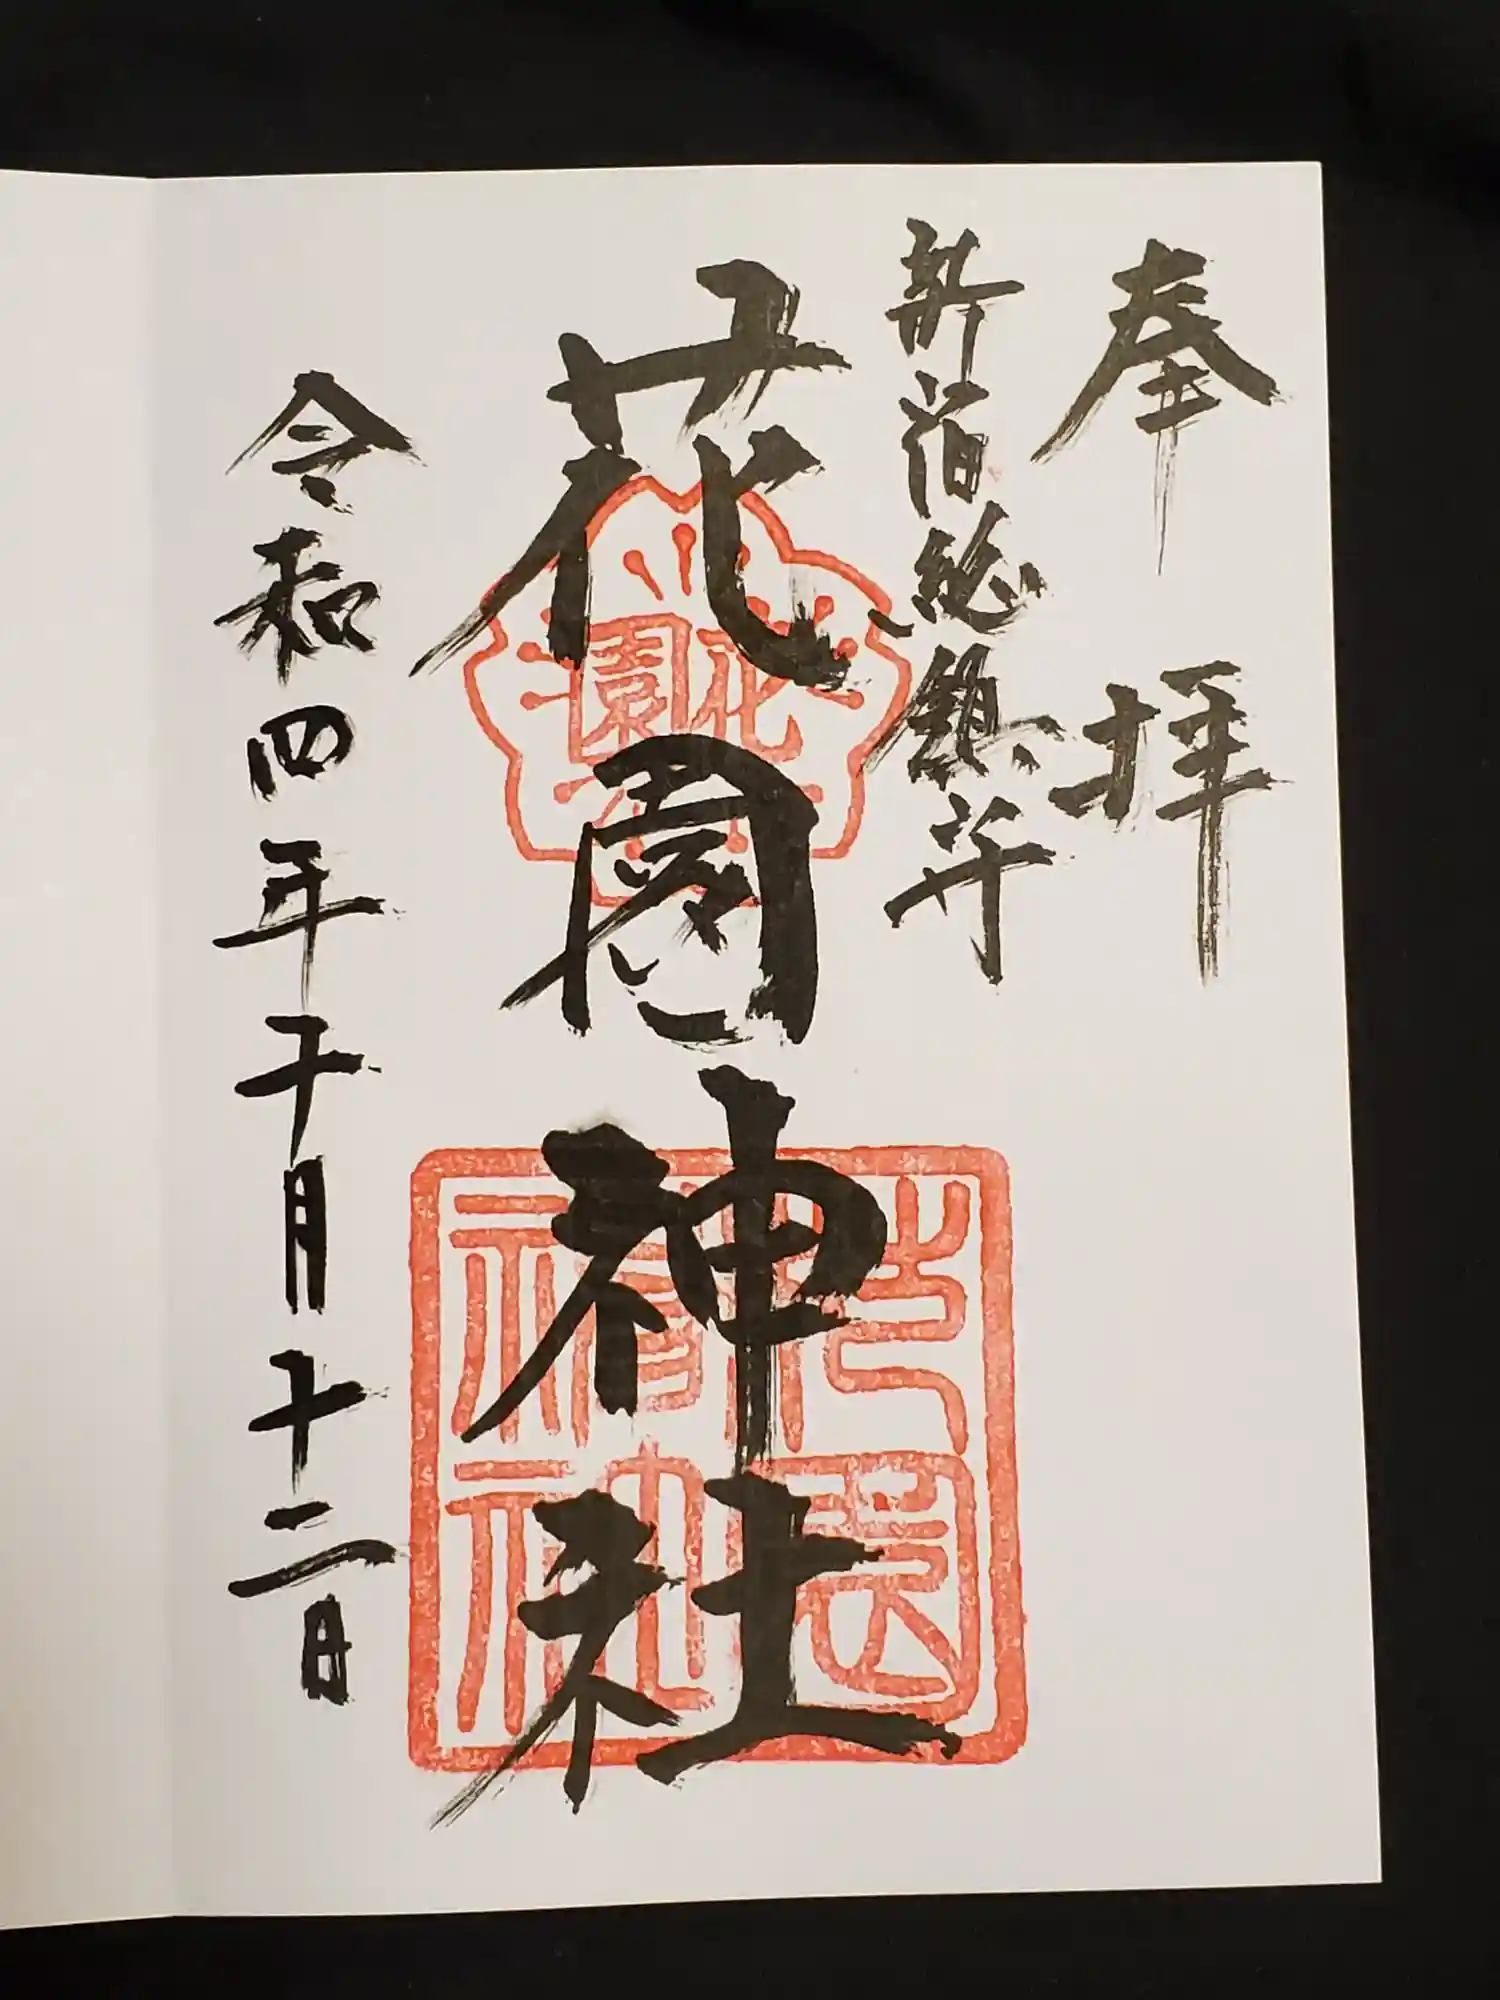 奉拝
新宿総鎮守
花園神社
令和四年十月十二日
花園
花園稲荷神社